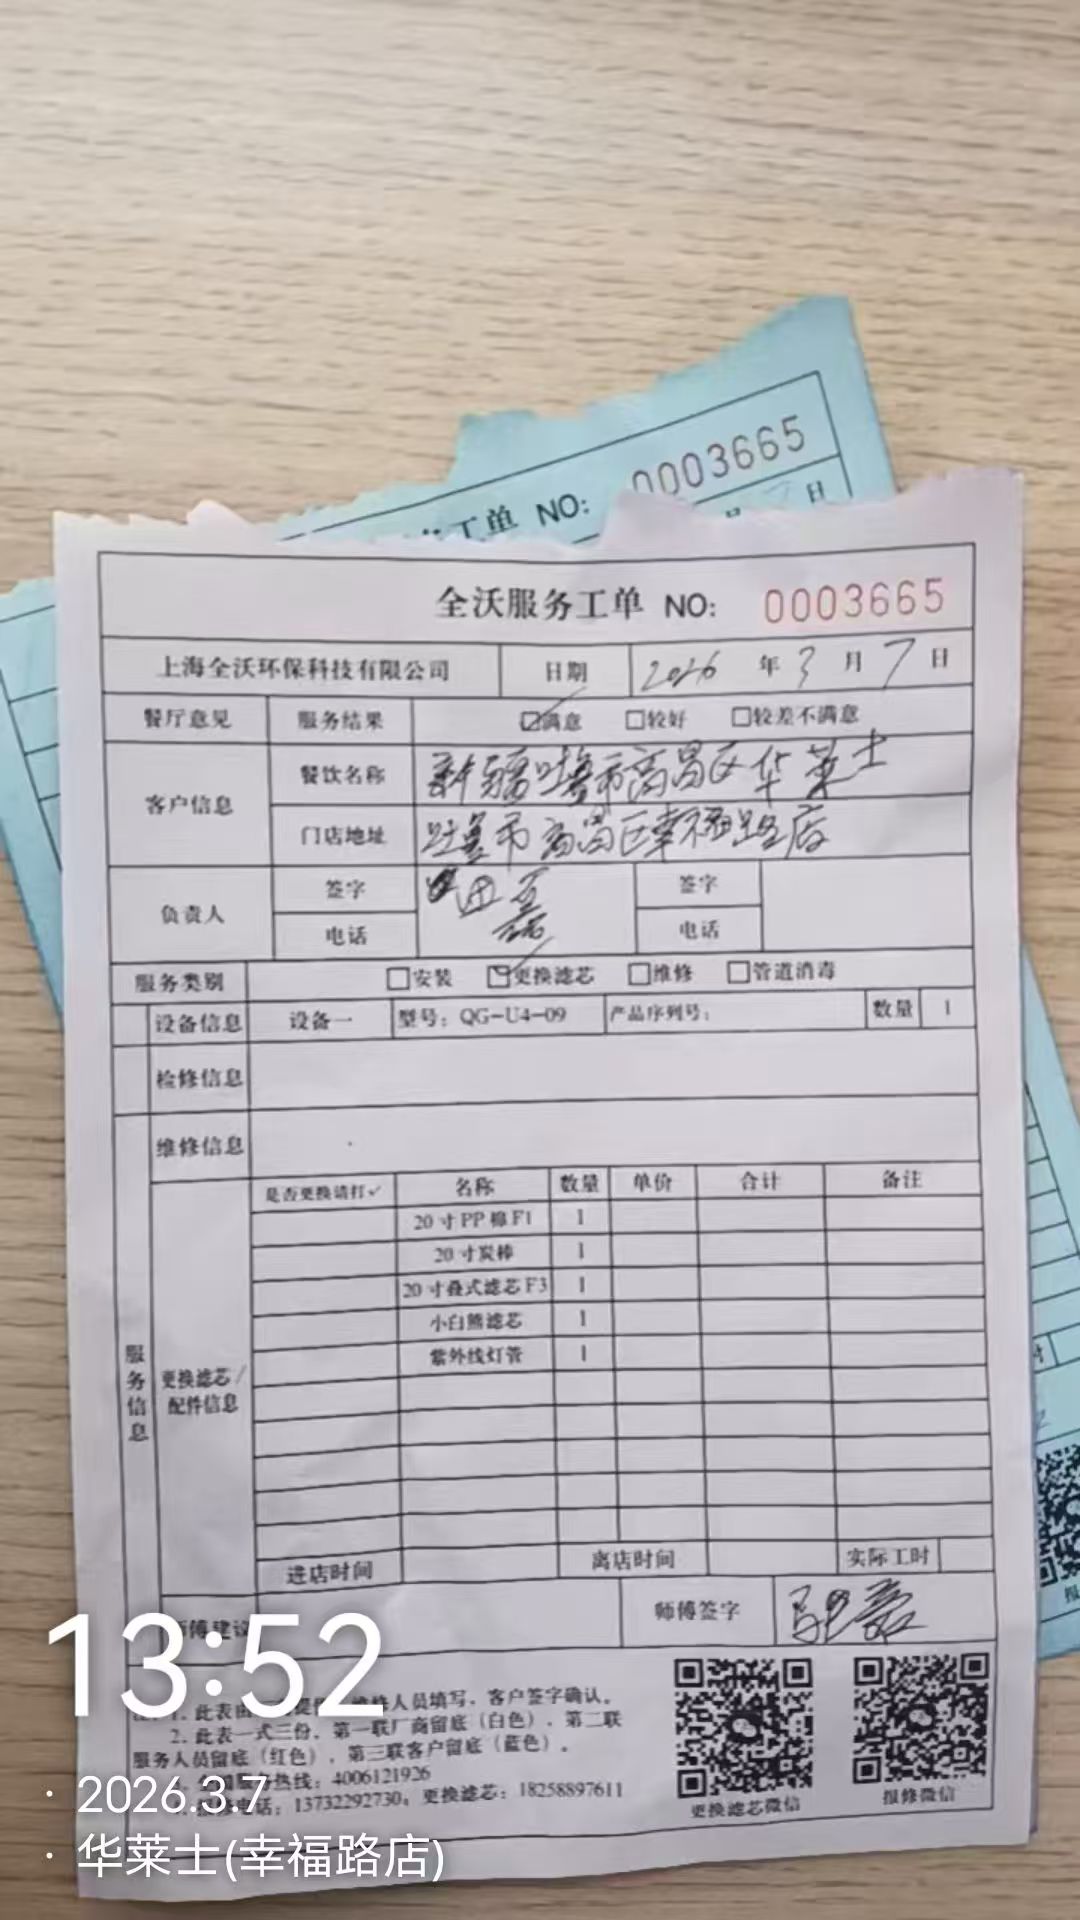 0003665
工单 NO:
日
全沃服务工单 NO: 0003665
上海全沃环保科技有限公司 日期 2026 年 3 月 7 日
餐厅意见 服务结果 ☑满意 □较好 □较差不满意
客户信息 餐饮名称 新疆吐鲁市高昌区华莱士
门店地址 吐鲁市高昌区幸福路店
负责人 签字 签字
电话 电话
服务类别 □安装 ☑更换滤芯 □维修 □管道消毒
设备信息 设备一 型号：QG-U4-09 产品序列号： 数量 1
检修信息
维修信息
服务信息
更换滤芯/配件信息
是否更换请打✓ 名称 数量 单价 合计 备注
20寸PP棉F1 1
20寸炭棒 1
20寸叠式滤芯F3 1
小白熊滤芯 1
紫外线灯管 1
进店时间 离店时间 实际工时
师傅建议 师傅签字
1. 此表由 人员填写，客户签字确认。
2. 此表一式三份，第一联厂商留底（白色），第二联
服务人员留底（红色），第三联客户留底（蓝色）。
服务热线：4006121926
报修电话：13732292730；更换滤芯：18258897611
更换滤芯微信 报修微信
13:52
· 2026.3.7
· 华莱士(幸福路店)